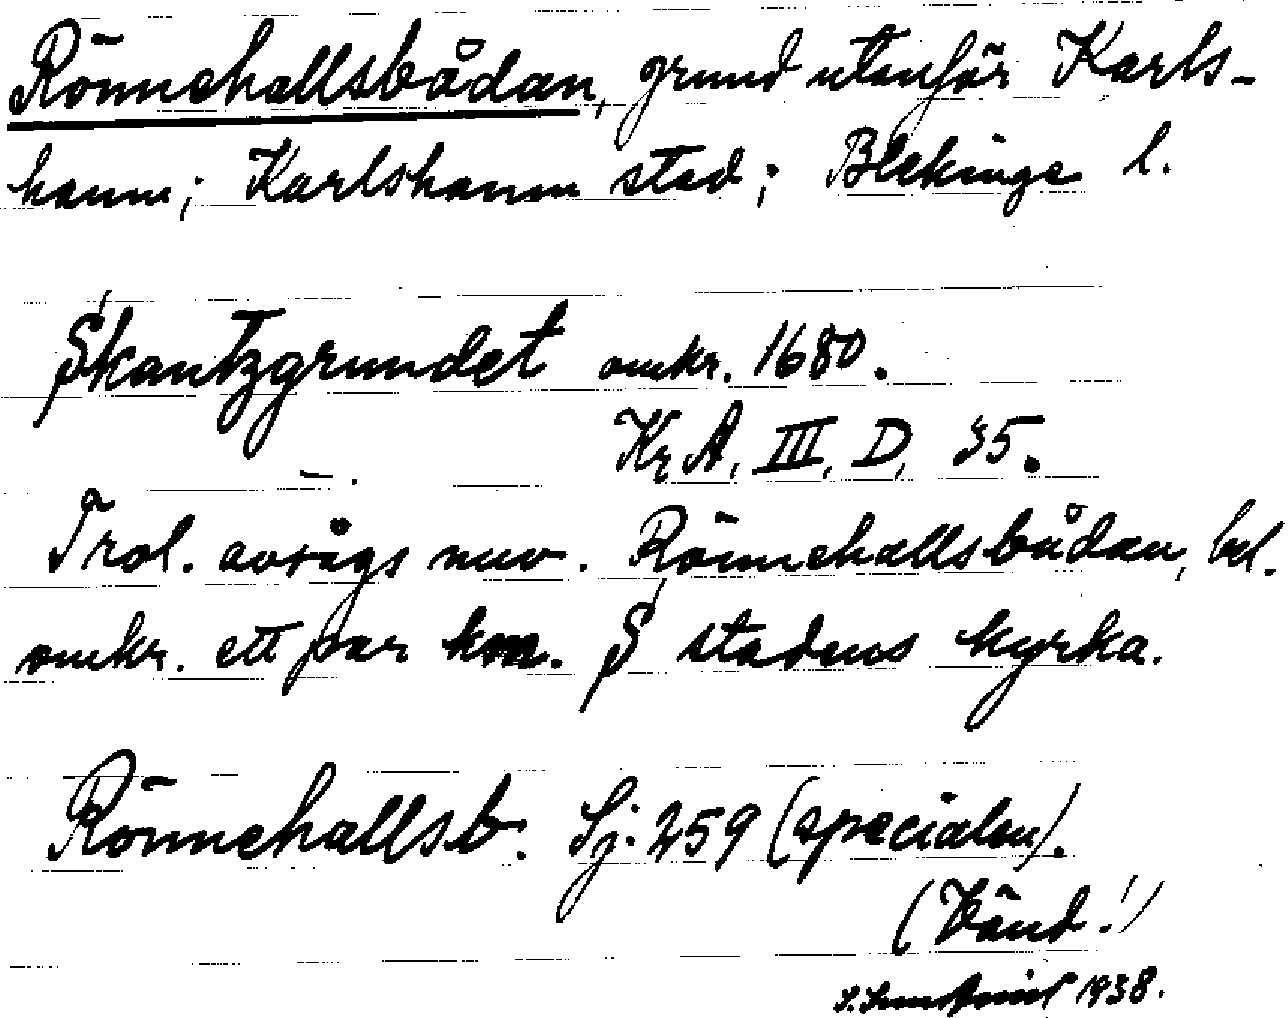 Rönnehallsbådan, grund utanför Karls-
hamn; Karlshamn stad; Blekinge l.
Skantzgrundet omkr. 1680.
Kr A, III, D, 35.
Trol. avsågs nuv. Rönnehallsbådan, bel.
omkr. ett par km. S stadens kyrka.
Rönnehallsb. Sj. 259 (specialen).
(Vänd!)
1938.